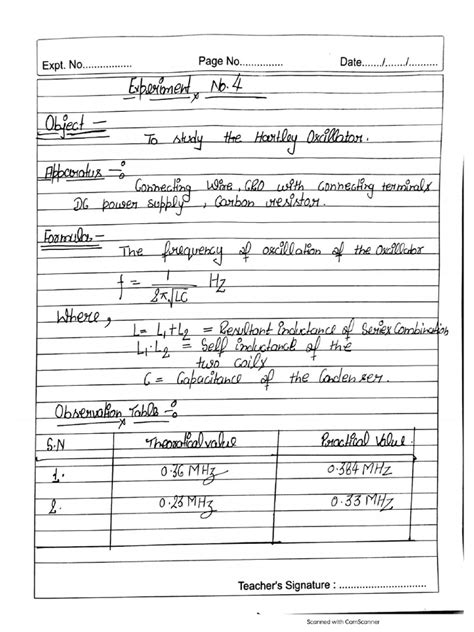 Expt. No.................
Page No...............
Date......./......./..........
Experiment No. 4
Object —
To study the Hartley Oscillator.
Apparatus —:
Connecting Wire, CRO with connecting terminals
DC power supply, Carbon resistor.
Formula —
The frequency of oscillation of the Oscillator
f = 1 / 2π√LC Hz
Where,
L = L1 + L2 = Resultant Inductance of Series Combination
L1 · L2 = Self inductance of the
two coils
C = Capacitance of the Condenser.
Observation Table —:
S.N Theoratical value Practical Value
1. 0.36 MHz 0.384 MHz
2. 0.23 MHz 0.33 MHz
Teacher's Signature : ........................
Scanned with CamScanner